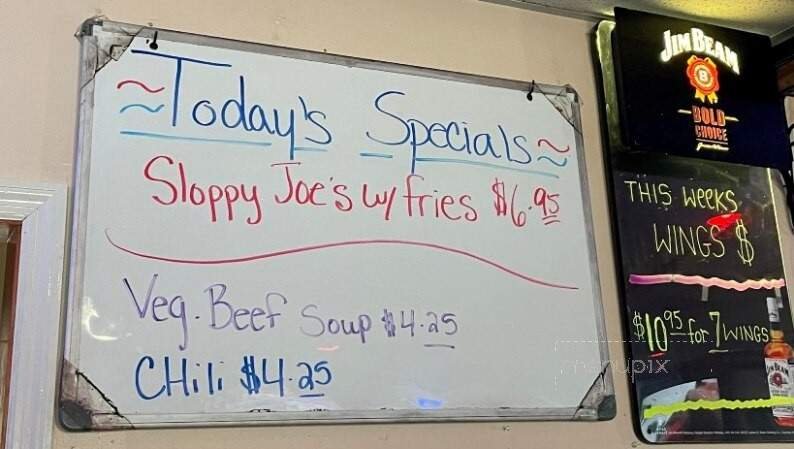 ~Today's Specials~
Sloppy Joe's w/ fries $6.95
Veg. Beef Soup $4.25
CHili $4.25
JIM BEAM
B
BOLD
CHOICE
THIS WEEKS
WINGS $
$10.95 for 7 WINGS
JIM BEAM
menupix